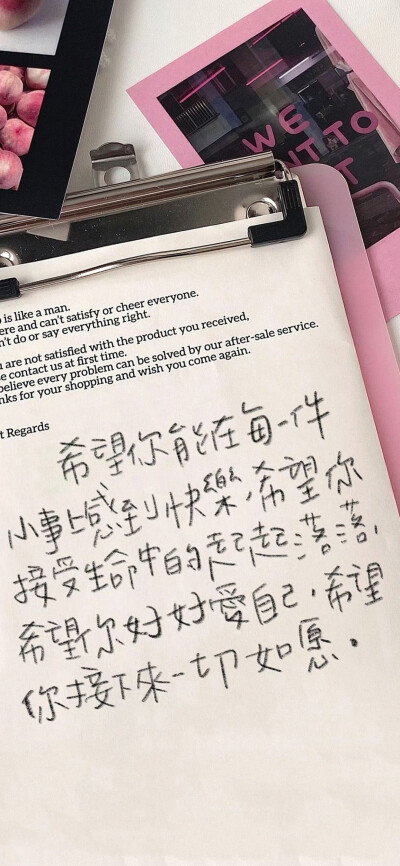 WE
TO
is like a man.
ere and can't satisfy or cheer everyone.
n't do or say everything right.
are not satisfied with the product you received,
contact us at first time.
believe every problem can be solved by our after-sale service.
nks for your shopping and wish you come again.
t Regards
希望你能在每一件
小事上感到快樂,希望你
接受生命中的起起落落,
希望你好好愛自己,希望
你接下來一切如愿。